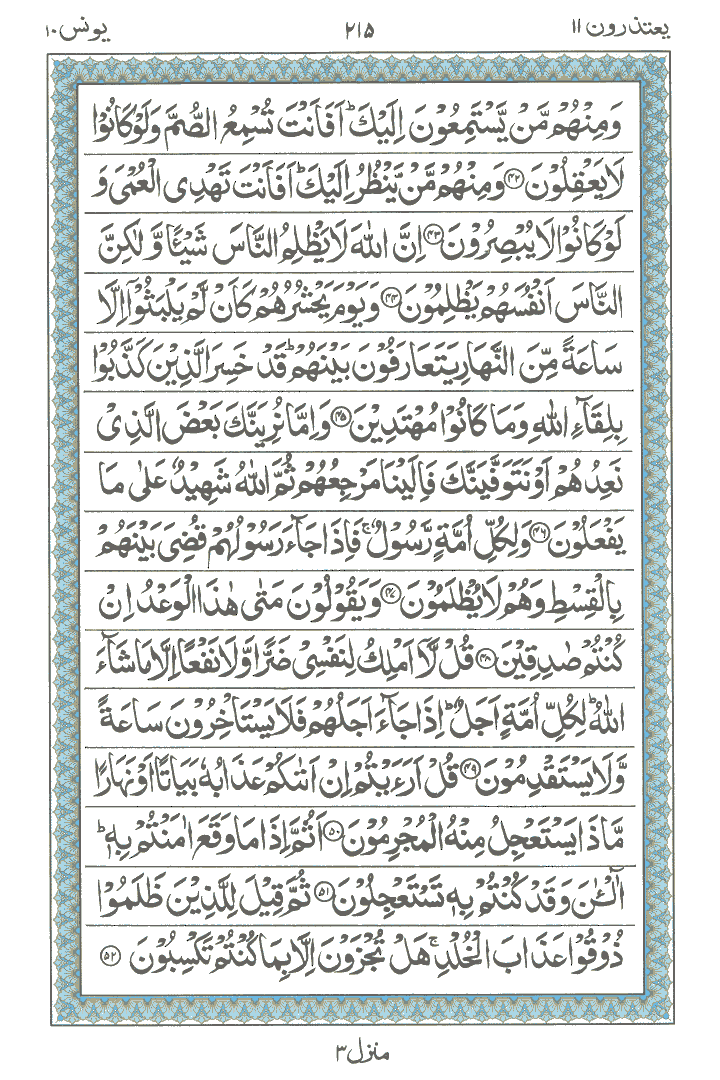 یعتذرون ۱۱ ۲۱۵ یونس ۱۰
وَمِنْهُمْ مَّنْ یَّسْتَمِعُوْنَ اِلَیْكَ ؕ اَفَاَنْتَ تُسْمِعُ الصُّمَّ وَلَوْ كَانُوْا
لَا یَعْقِلُوْنَ ﴿۴۲﴾ وَمِنْهُمْ مَّنْ یَّنْظُرُ اِلَیْكَ ؕ اَفَاَنْتَ تَهْدِی الْعُمْیَ وَ
لَوْ كَانُوْا لَا یُبْصِرُوْنَ ﴿۴۳﴾ اِنَّ اللّٰهَ لَا یَظْلِمُ النَّاسَ شَیْـًٔا وَّ لٰكِنَّ
النَّاسَ اَنْفُسَهُمْ یَظْلِمُوْنَ ﴿۴۴﴾ وَیَوْمَ یَحْشُرُهُمْ كَاَنْ لَّمْ یَلْبَثُوْۤا اِلَّا
سَاعَةً مِّنَ النَّهَارِ یَتَعَارَفُوْنَ بَیْنَهُمْ ؕ قَدْ خَسِرَ الَّذِیْنَ كَذَّبُوْا
بِلِقَآءِ اللّٰهِ وَمَا كَانُوْا مُهْتَدِیْنَ ﴿۴۵﴾ وَاِمَّا نُرِیَنَّكَ بَعْضَ الَّذِیْ
نَعِدُهُمْ اَوْ نَتَوَفَّیَنَّكَ فَاِلَیْنَا مَرْجِعُهُمْ ثُمَّ اللّٰهُ شَهِیْدٌ عَلٰی مَا
یَفْعَلُوْنَ ﴿۴۶﴾ وَلِكُلِّ اُمَّةٍ رَّسُوْلٌ ۚ فَاِذَا جَآءَ رَسُوْلُهُمْ قُضِیَ بَیْنَهُمْ
بِالْقِسْطِ وَهُمْ لَا یُظْلَمُوْنَ ﴿۴۷﴾ وَیَقُوْلُوْنَ مَتٰی هٰذَا الْوَعْدُ اِنْ
كُنْتُمْ صٰدِقِیْنَ ﴿۴۸﴾ قُلْ لَّاۤ اَمْلِكُ لِنَفْسِیْ ضَرًّا وَّلَا نَفْعًا اِلَّا مَا شَآءَ
اللّٰهُ ؕ لِكُلِّ اُمَّةٍ اَجَلٌ ؕ اِذَا جَآءَ اَجَلُهُمْ فَلَا یَسْتَاْخِرُوْنَ سَاعَةً
وَّلَا یَسْتَقْدِمُوْنَ ﴿۴۹﴾ قُلْ اَرَءَیْتُمْ اِنْ اَتٰىكُمْ عَذَابُهٗ بَیَاتًا اَوْ نَهَارًا
مَّاذَا یَسْتَعْجِلُ مِنْهُ الْمُجْرِمُوْنَ ﴿۵۰﴾ اَثُمَّ اِذَا مَا وَقَعَ اٰمَنْتُمْ بِهٖ ؕ
آٰلْـٰٔنَ وَقَدْ كُنْتُمْ بِهٖ تَسْتَعْجِلُوْنَ ﴿۵۱﴾ ثُمَّ قِیْلَ لِلَّذِیْنَ ظَلَمُوْا
ذُوْقُوْا عَذَابَ الْخُلْدِ ۚ هَلْ تُجْزَوْنَ اِلَّا بِمَا كُنْتُمْ تَكْسِبُوْنَ ﴿۵۲﴾
منزل ۳